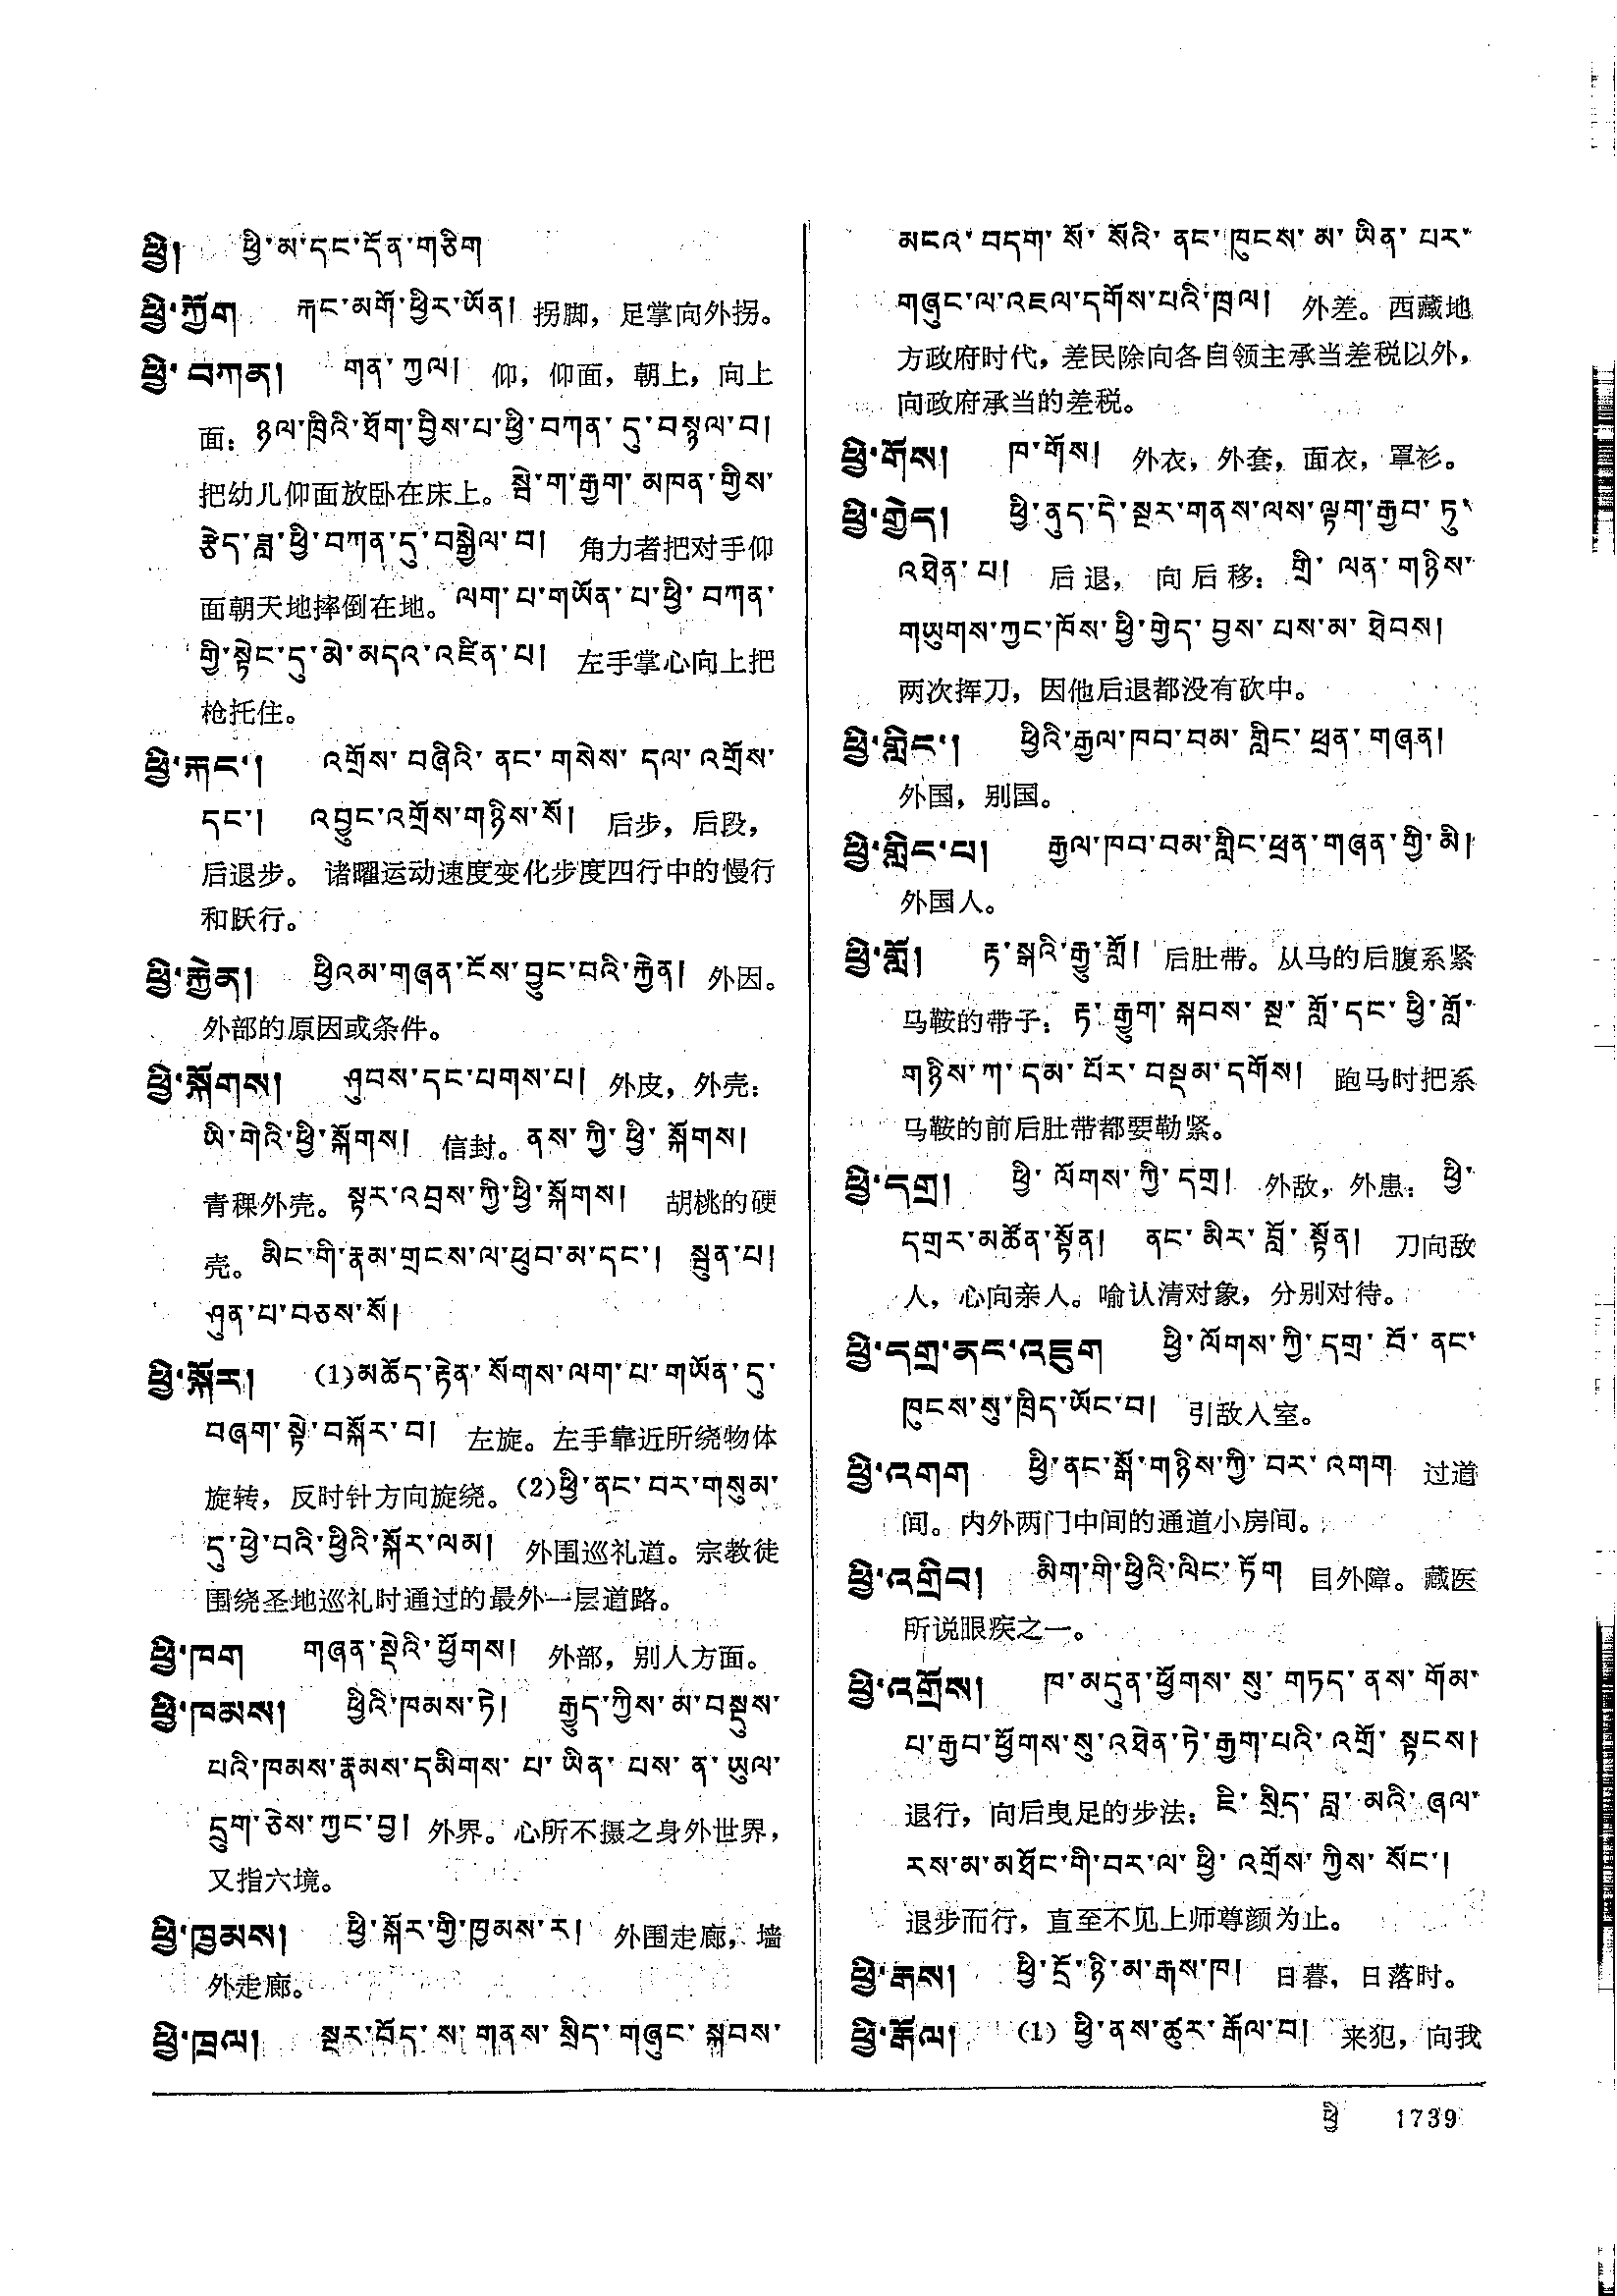 ཕྱི། ཕྱི་མ་དང་དོན་གཅིག
ཕྱི་ཀྱོག རྐང་མགོ་ཕྱིར་ཡོན། 拐脚，足掌向外拐。
ཕྱི་བཀན། གན་ཀྱལ། 仰，仰面，朝上，向上
面：ཉལ་ཁྲིའི་ཐོག་བྱིས་པ་ཕྱི་བཀན་དུ་བསྙལ་བ།
把幼儿仰面放卧在床上。སྦེ་ག་རྒྱག་མཁན་གྱིས་
རྩེད་ཟླ་ཕྱི་བཀན་དུ་བསྒྱེལ་བ། 角力者把对手仰
面朝天地摔倒在地。ལག་པ་གཡོན་པ་ཕྱི་བཀན་
གྱི་སྟེང་དུ་མེ་མདའ་འཛིན་པ། 左手掌心向上把
枪托住。
ཕྱི་རྐང་། འགྲོས་བཞིའི་ནང་གསེས་དལ་འགྲོས་
དང་། འབྱུང་འགྲོས་གཉིས་སོ། 后步，后段，
后退步。诸曜运动速度变化步度四行中的慢行
和跃行。
ཕྱི་རྐྱེན། ཕྱིའམ་གཞན་ངོས་བྱུང་བའི་རྐྱེན། 外因。
外部的原因或条件。
ཕྱི་སྐོགས། ཤུབས་དང་པགས་པ། 外皮，外壳：
ཡི་གེའི་ཕྱི་སྐོགས། 信封。ནས་ཀྱི་ཕྱི་སྐོགས།
青稞外壳。སྟར་འབྲས་ཀྱི་ཕྱི་སྐོགས། 胡桃的硬
壳。མིང་གི་རྣམ་གྲངས་ལ་ཕུབ་མ་དང་། སྦུན་པ།
ཤུན་པ་བཅས་སོ།
ཕྱི་སྐོར། (1)མཆོད་རྟེན་སོགས་ལག་པ་གཡོན་དུ་
བཞག་སྟེ་བསྐོར་བ། 左旋。左手靠近所绕物体
旋转，反时针方向旋绕。(2)ཕྱི་ནང་བར་གསུམ་
དུ་ཕྱེ་བའི་ཕྱིའི་སྐོར་ལམ། 外围巡礼道。宗教徒
围绕圣地巡礼时通过的最外一层道路。
ཕྱི་ཁག གཞན་སྡེའི་ཕྱོགས། 外部，别人方面。
ཕྱི་ཁམས། ཕྱིའི་ཁམས་ཏེ། རྒྱུད་ཀྱིས་མ་བསྡུས་
པའི་ཁམས་རྣམས་དམིགས་པ་ཡིན་པས་ན་ཡུལ་
དྲུག་ཅེས་ཀྱང་བྱ། 外界。心所不摄之身外世界，
又指六境。
ཕྱི་ཁྱམས། ཕྱི་སྐོར་གྱི་ཁྱམས་ར། 外围走廊，墙
外走廊。
ཕྱི་ཁྲལ། སྔར་བོད་ས་གནས་སྲིད་གཞུང་སྐབས་
མངའ་བདག་སོ་སོའི་ནང་ཁུངས་མ་ཡིན་པར་
གཞུང་ལ་འཇལ་དགོས་པའི་ཁྲལ། 外差。西藏地
方政府时代，差民除向各自领主承当差税以外，
向政府承当的差税。
ཕྱི་གོས། ཁ་གོས། 外衣，外套，面衣，罩衫。
ཕྱི་གྱེད། ཕྱི་ནུད་དེ་སྔར་གནས་ལས་ལྟག་རྒྱབ་ཏུ་
འཐེན་པ། 后退，向后移：གྲི་ལན་གཉིས་
གཡུགས་ཀྱང་ཁོས་ཕྱི་གྱེད་བྱས་པས་མ་ཐེབས།
两次挥刀，因他后退都没有砍中。
ཕྱི་གླིང་། ཕྱིའི་རྒྱལ་ཁབ་བམ་གླིང་ཕྲན་གཞན།
外国，别国。
ཕྱི་གླིང་པ། རྒྱལ་ཁབ་བམ་གླིང་ཕྲན་གཞན་གྱི་མི།
外国人。
ཕྱི་གློ། རྟ་སྒའི་རྒྱུ་གློ། 后肚带。从马的后腹系紧
马鞍的带子：རྟ་རྒྱུག་སྐབས་སྔ་གློ་དང་ཕྱི་གློ་
གཉིས་ཀ་དམ་པོར་བསྡམ་དགོས། 跑马时把系
马鞍的前后肚带都要勒紧。
ཕྱི་དགྲ། ཕྱི་ལོགས་ཀྱི་དགྲ། 外敌，外患：ཕྱི་
དགྲར་མཚོན་སྟོན། ནང་མིར་བློ་སྟོན། 刀向敌
人，心向亲人。喻认清对象，分别对待。
ཕྱི་དགྲ་ནང་འཇུག ཕྱི་ལོགས་ཀྱི་དགྲ་བོ་ནང་
ཁུངས་སུ་ཁྲིད་ཡོང་བ། 引敌入室。
ཕྱི་འགག ཕྱི་ནང་སྒོ་གཉིས་ཀྱི་བར་འགག 过道
间。内外两门中间的通道小房间。
ཕྱི་འགྲིབ། མིག་གི་ཕྱིའི་ལིང་ཏོག 目外障。藏医
所说眼疾之一。
ཕྱི་འགྲོས། ཁ་མདུན་ཕྱོགས་སུ་གཏད་ནས་གོམ་
པ་རྒྱབ་ཕྱོགས་སུ་འཐེན་ཏེ་རྒྱག་པའི་འགྲོ་སྟངས།
退行，向后曳足的步法：ཇི་སྲིད་བླ་མའི་ཞལ་
རས་མ་མཐོང་གི་བར་ལ་ཕྱི་འགྲོས་ཀྱིས་སོང་།
退步而行，直至不见上师尊颜为止。
ཕྱི་རྒས། ཕྱི་དྲོ་ཉི་མ་རྒས་ཁ། 日暮，日落时。
ཕྱི་རྒོལ། (1) ཕྱི་ནས་ཚུར་རྒོལ་བ། 来犯，向我
ཕྱི 1739